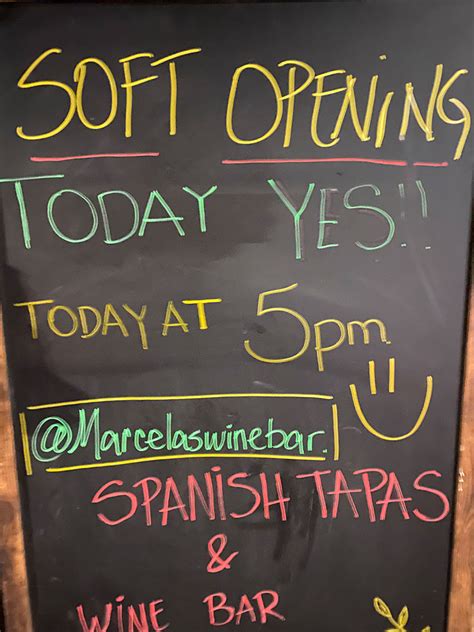 SOFT OPENING
TODAY YES!!
TODAY AT 5pm
@Marcelaswinebar.
SPANISH TAPAS
&
WINE BAR